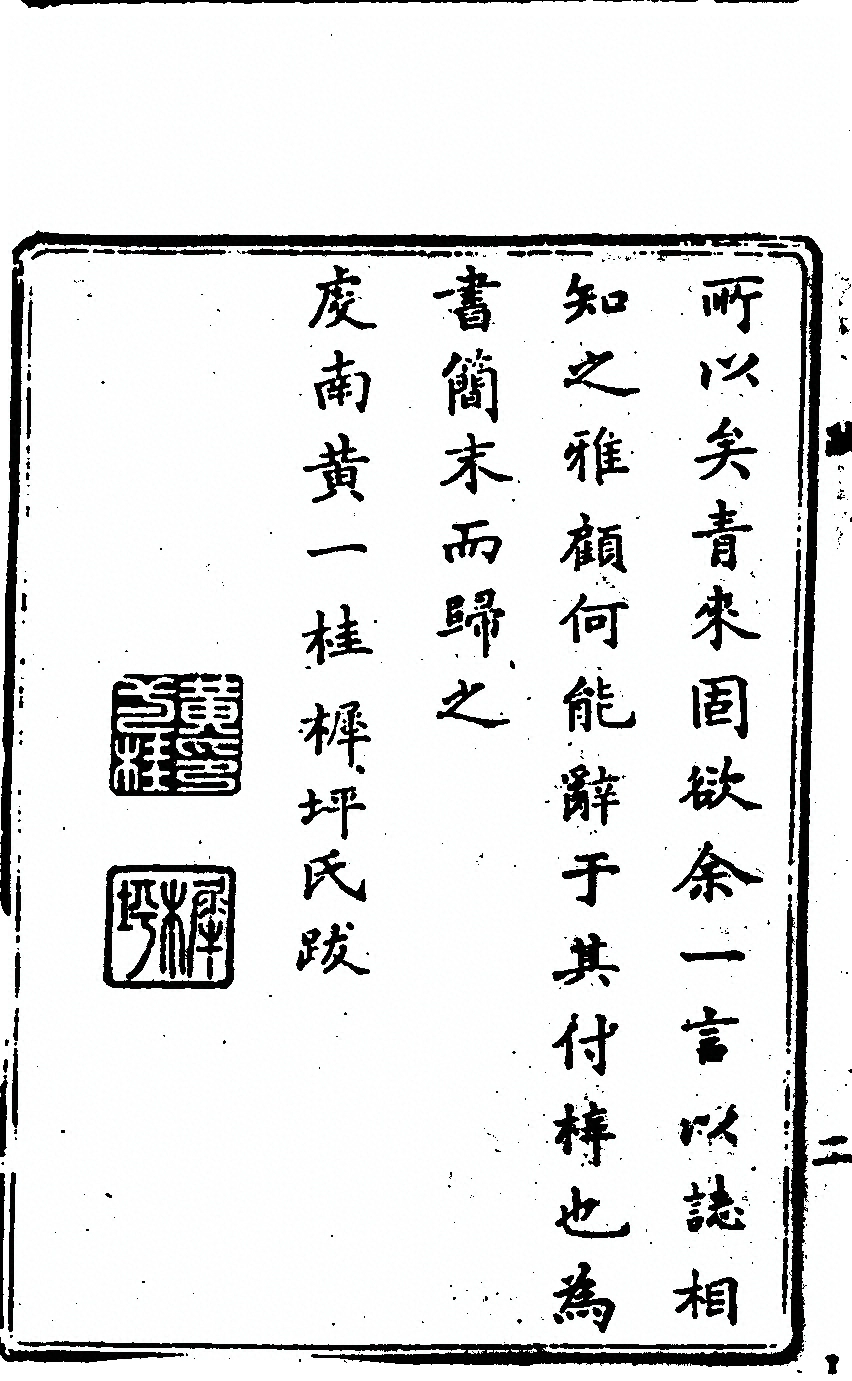 所以矣青來固欲余一言以誌相
知之雅顧何能辭于其付梓也為
書簡末而歸之
虔南黄一桂樨坪氏跋
樨坪
二